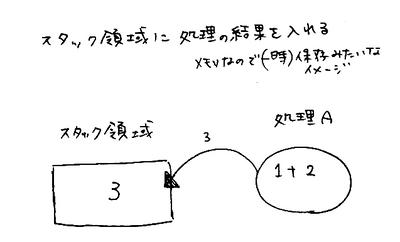 スタック領域に 処理の結果を入れる
メモリなので(一時)保存みたいな
イメージ
処理A
スタック領域
3
1+2
3